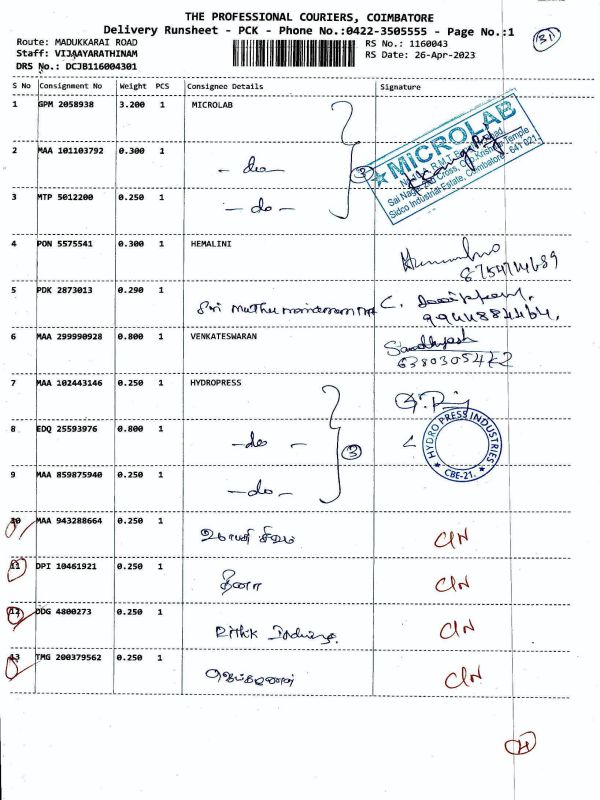 THE PROFESSIONAL COURIERS, COIMBATORE
Delivery Runsheet - PCK - Phone No.:0422-3505555 - Page No.:1
31
Route: MADUKKARAI ROAD
RS No.: 1160043
Staff: VIJAYARATHINAM
RS Date: 26-Apr-2023
DRS No.: DCJB116004301
S No Consignment No Weight PCS Consignee Details Signature
1 GPM 2058938 3.200 1 MICROLAB
MICROLAB
2 MAA 101103792 0.300 1 - do -
3
Sidco Industrial Estate, Coimbatore - 641 021.
3 MTP 5012200 0.250 1 - do -
4 PON 5575541 0.300 1 HEMALINI
8754714689
5 PDK 2873013 0.290 1 Sri
9944884464.
6 MAA 299990928 0.800 1 VENKATESWARAN
7 MAA 102443146 0.250 1 HYDROPRESS
HYDRO PRESS INDUSTRIES
CBE-21.
8 EDQ 25593976 0.800 1 - do -
3
9 MAA 859875940 0.250 1 - do -
10 MAA 943288664 0.250 1 C/N
11 DPI 10461921 0.250 1 C/N
12 DDG 4800273 0.250 1 C/N
13 TMG 200379562 0.250 1 C/N
4